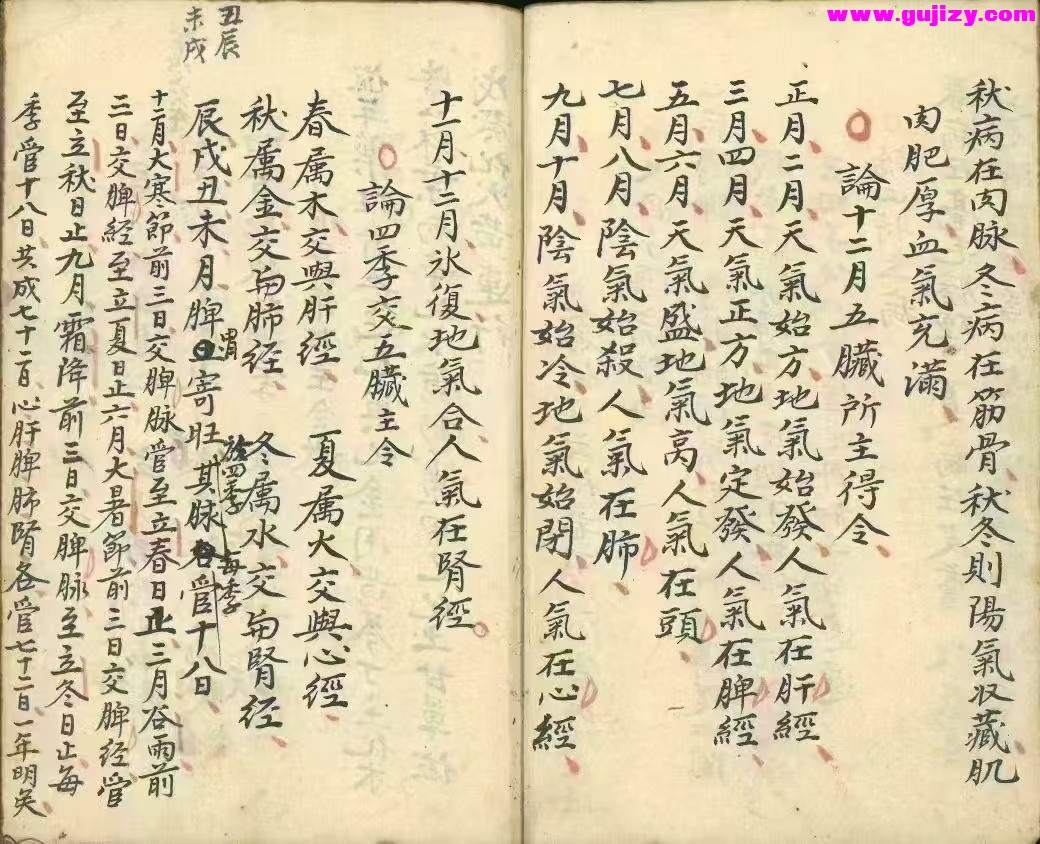 www.gujizy.com
秋病在肉脉、冬病在筋骨、秋冬則陽氣収藏、肌
肉肥厚、血氣充滿
論十二月五臟所主得令、
正月、二月、天氣始方、地氣始發、人氣在肝經、
三月、四月、天氣正方、地氣定發、人氣在脾經、
五月、六月、天氣盛、地氣高、人氣在頭、
七月、八月、陰氣始殺、人氣在肺、
九月、十月、陰氣始冷、地氣始閉、人氣在心經、
十一月十二月氷復地氣合人氣在腎經。
論四季交五臟主令
春属木、交與肝經、 夏属火、交與心經、
秋属金、交與肺経 冬属水、交與腎経
辰戌丑未月脾胃寄旺於四季其脉每季管十八日、
丑辰
未戌
十二月大寒節前三日交脾脉管至立春日止三月谷雨前
三日交脾經至立夏日止六月大暑節前三日交脾經管
至立秋日止九月霜降前三日交脾脉至立冬日止每
季管十八日共成七十二日、心肝脾肺腎各管七十二日一年明矣、